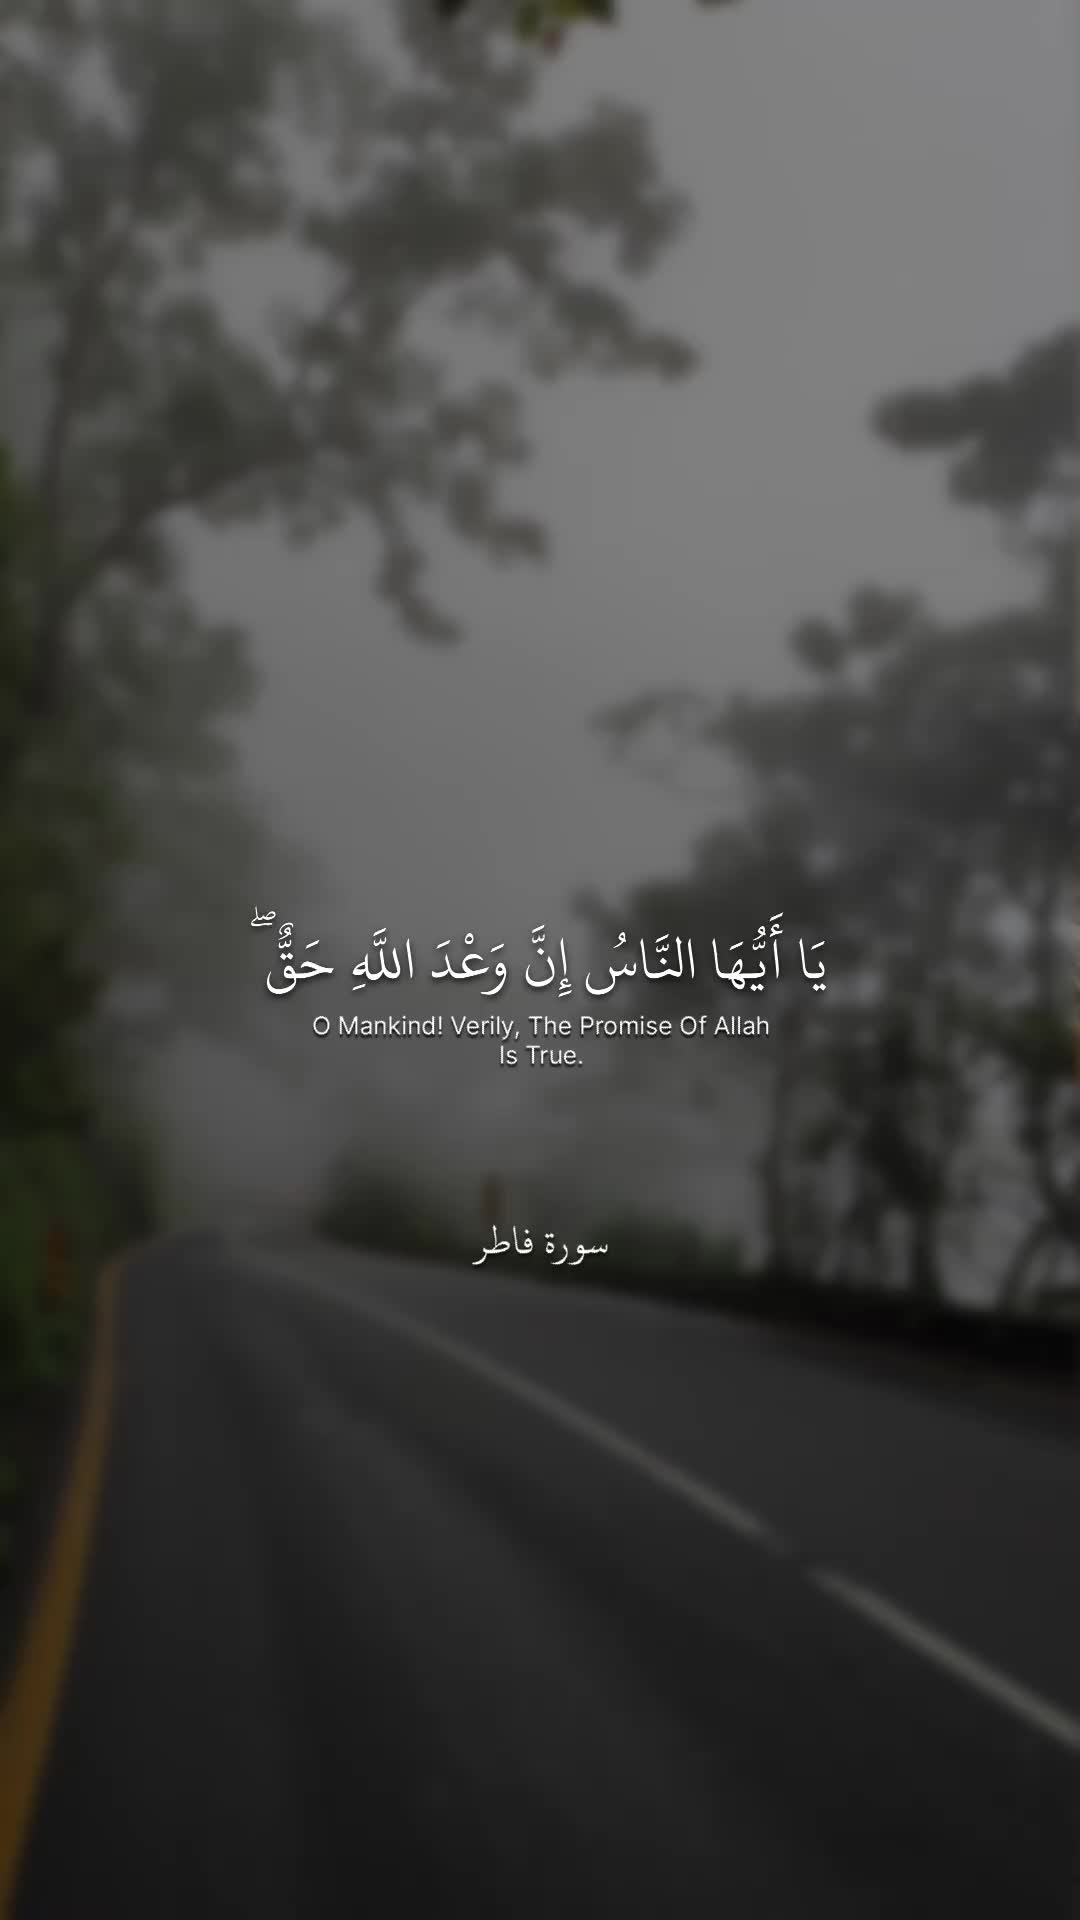 يَا أَيُّهَا النَّاسُ إِنَّ وَعْدَ اللَّهِ حَقٌّ ۖ
O Mankind! Verily, The Promise Of Allah
Is True.
سورة فاطر